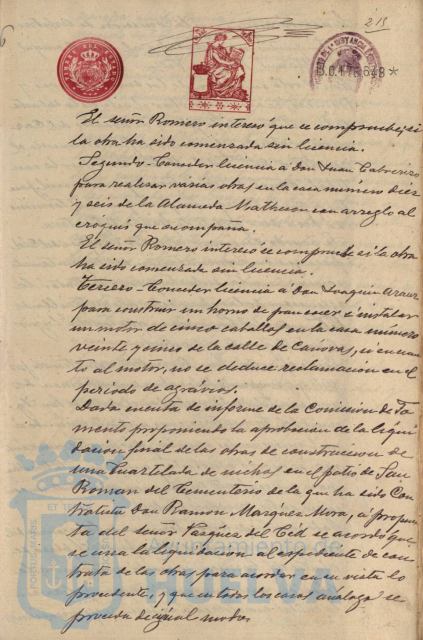 213
B.0.178.648*
El señor Romero interesó que se compruebe si
la obra ha sido comenzada sin licencia.
Segundo - Conceder licencia á Don Juan Cabrerizo
para realizar varias obras en la casa número diez
y seis de la Alameda Matheson con arreglo al
cróquis que acompaña.
El señor Romero interesó se compruebe si la obra
ha sido comenzada sin licencia.
Tercero - Conceder licencia á Don Joaquin Arauz
para construir un horno de pan cocer é instalar
un motor de cinco caballos en la casa número
veinte y cinco de la calle de Cánovas, si en cuan
to al motor, no se deduce reclamacion en el
período de agrávios.
Dada cuenta de informe de la Comision de Fo
mento proponiendo la aprobacion de la liqui
dacion final de las obras de construccion de
una cuartelada de nichos en el patio de San
Roman del Cementerio de la que ha sido Con
tratista Don Ramon Marquez Mora, á propues
ta del señor Vazquez del Cid se acordó que
se una la liquidacion al expediente de con
trata de las obras para acordar en su vista lo
procedente, y que en todos los casos análogos se
proceda de igual modo.
HUELVA